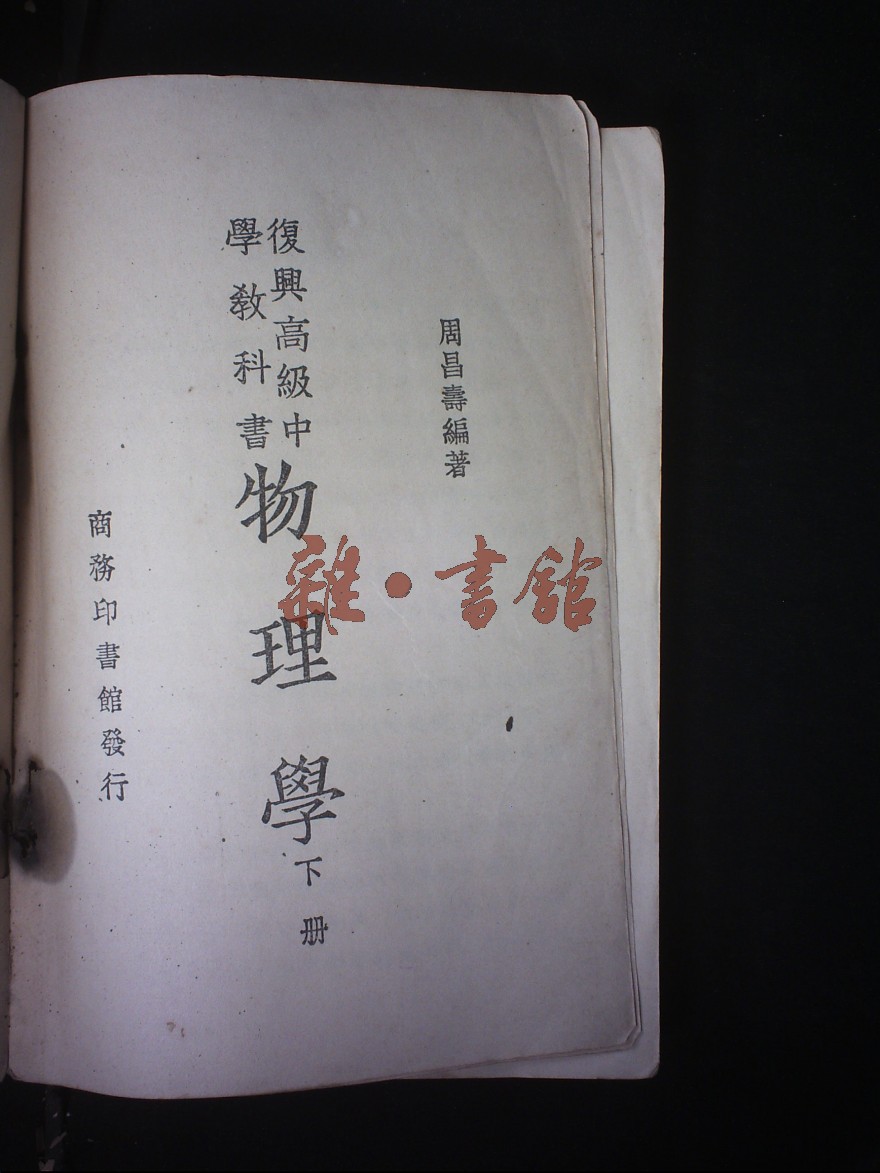 周昌壽編著
復興高級中
學教科書
物理學下册
商務印書館發行
雜·書館